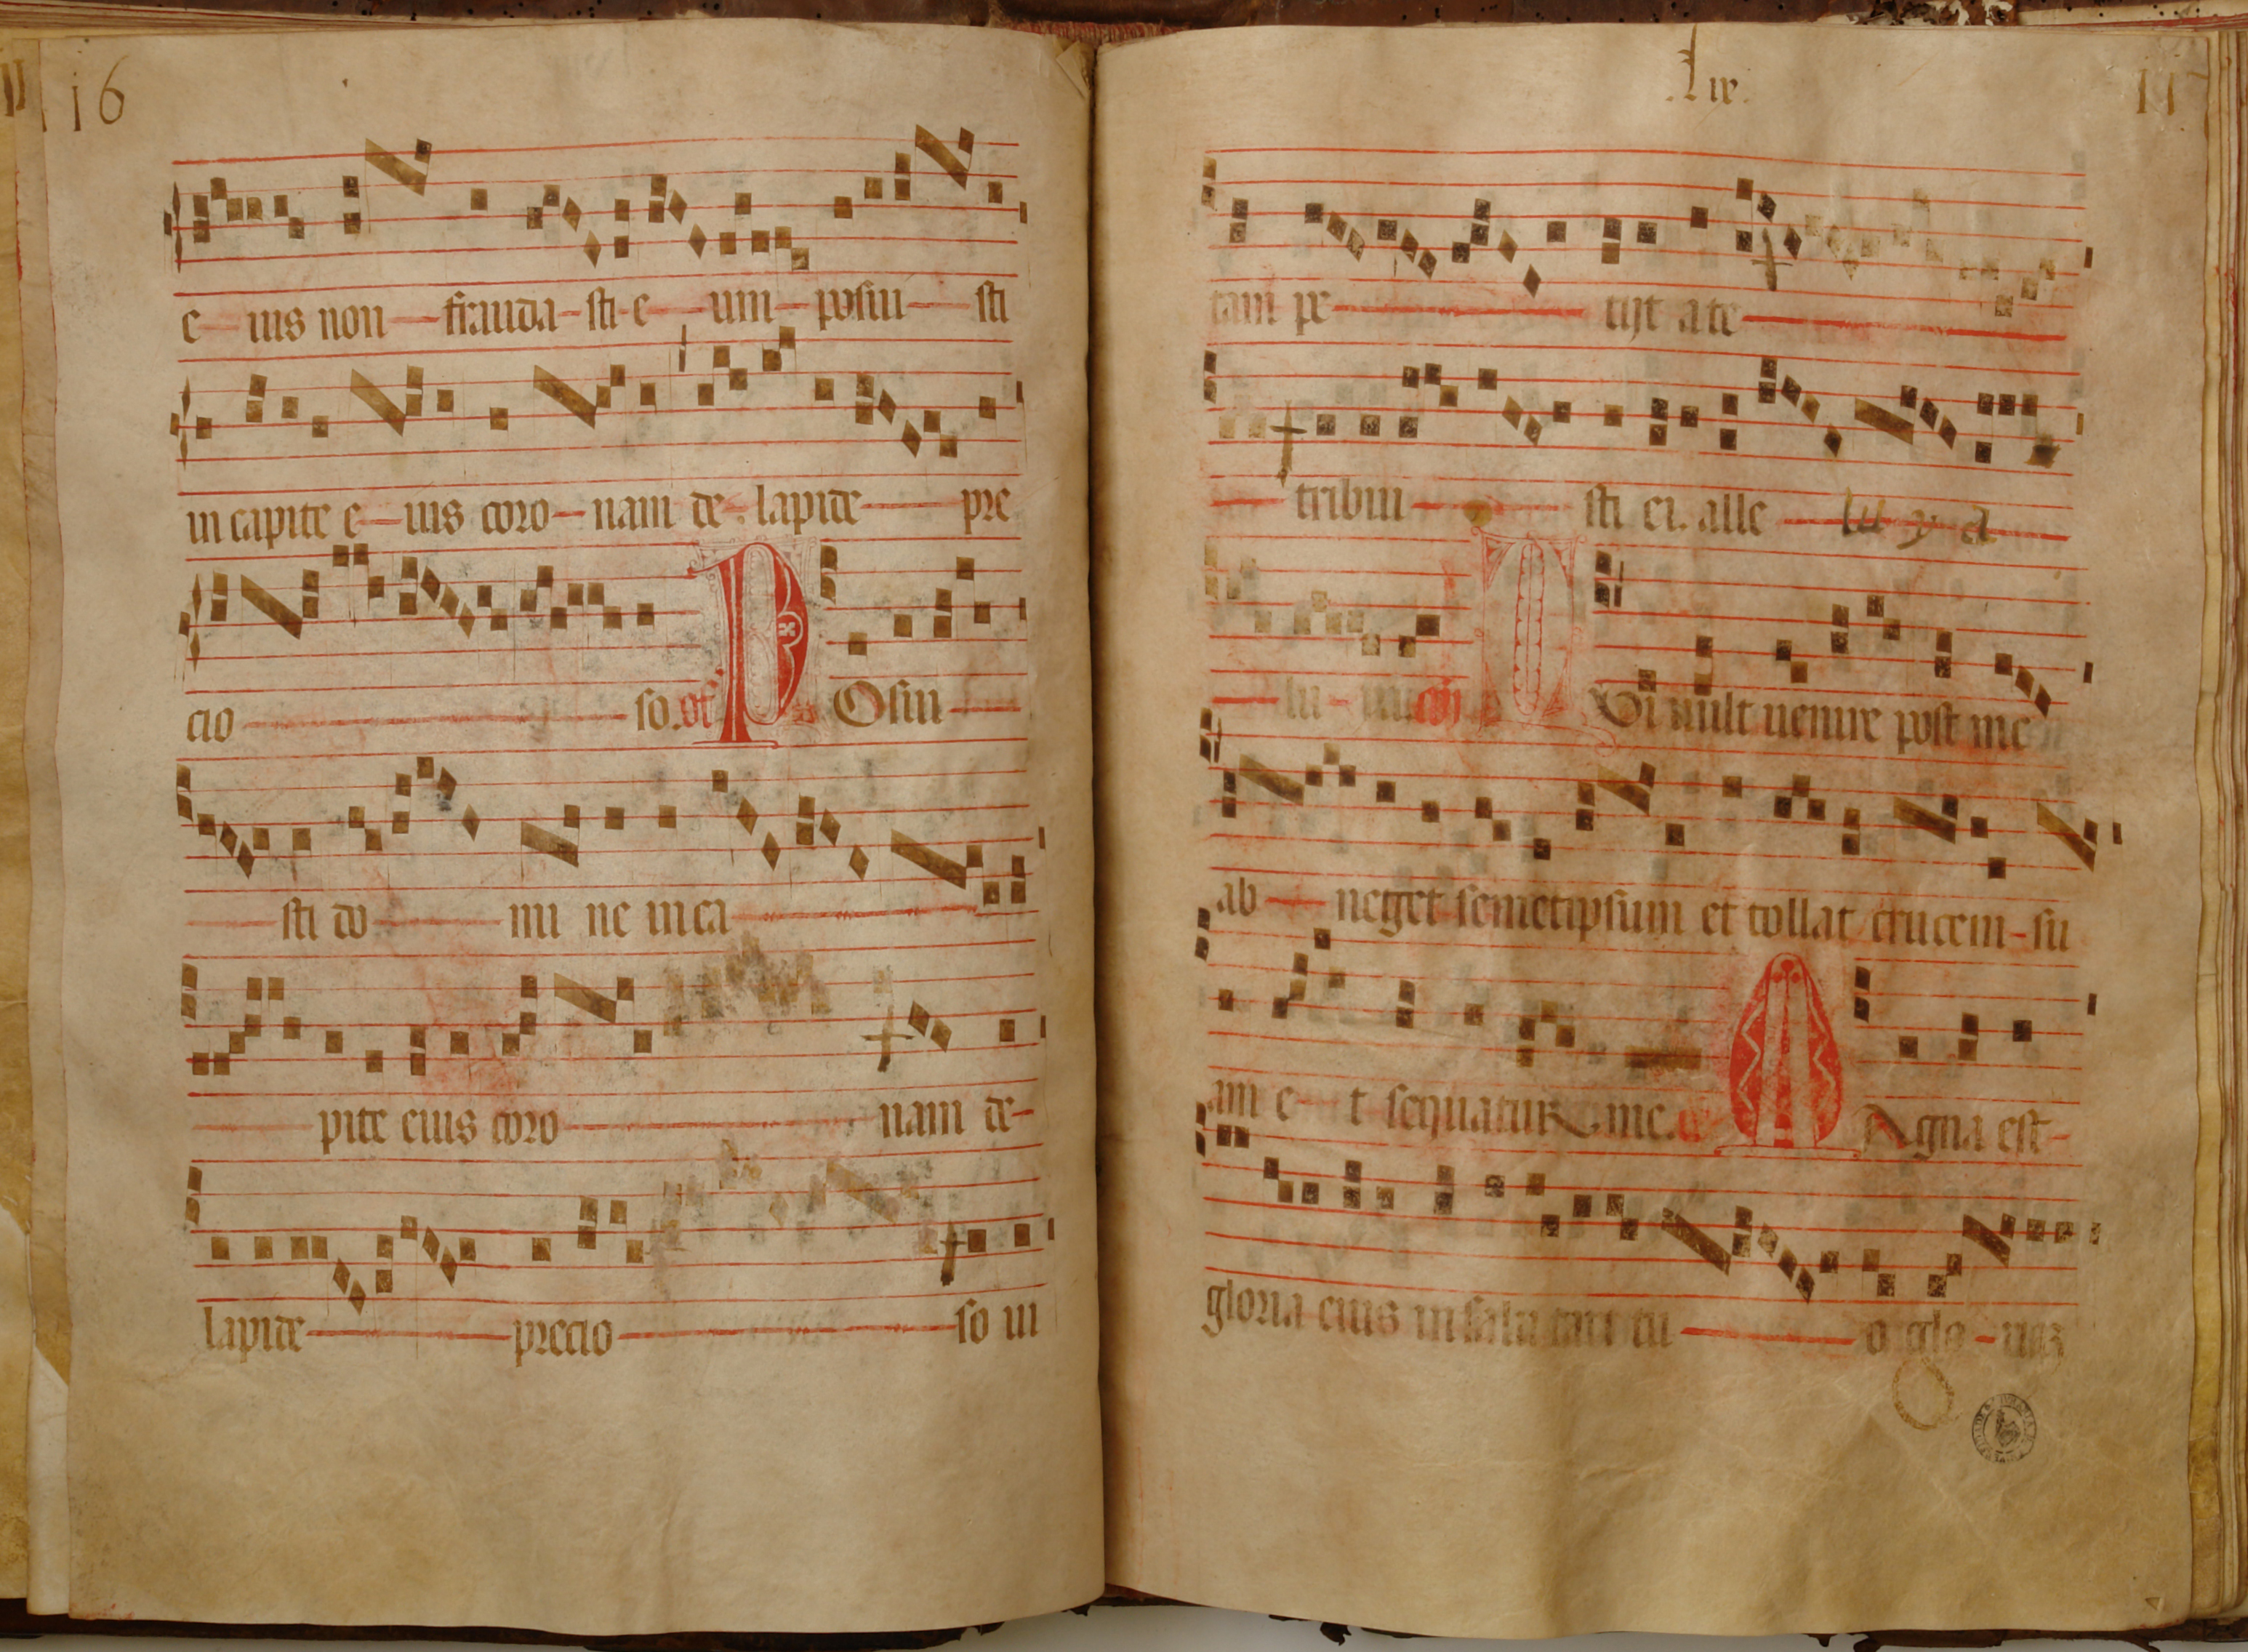 16
e ius non frauda sti e um posui sti
in capite e ius coro nam de lapide pre
cio so. of P Osui
sti do mi ne in ca
pite eius coro nam de
lapide precio so ui
.lix.
tam pe tijt a te
tribui sti ei. alle lu y a
Q Vi uult uenire post me
ab neget semetipsum et tollat crucem su
am e t sequatur me. M Agna est
gloria eius in salu tari tu o glo